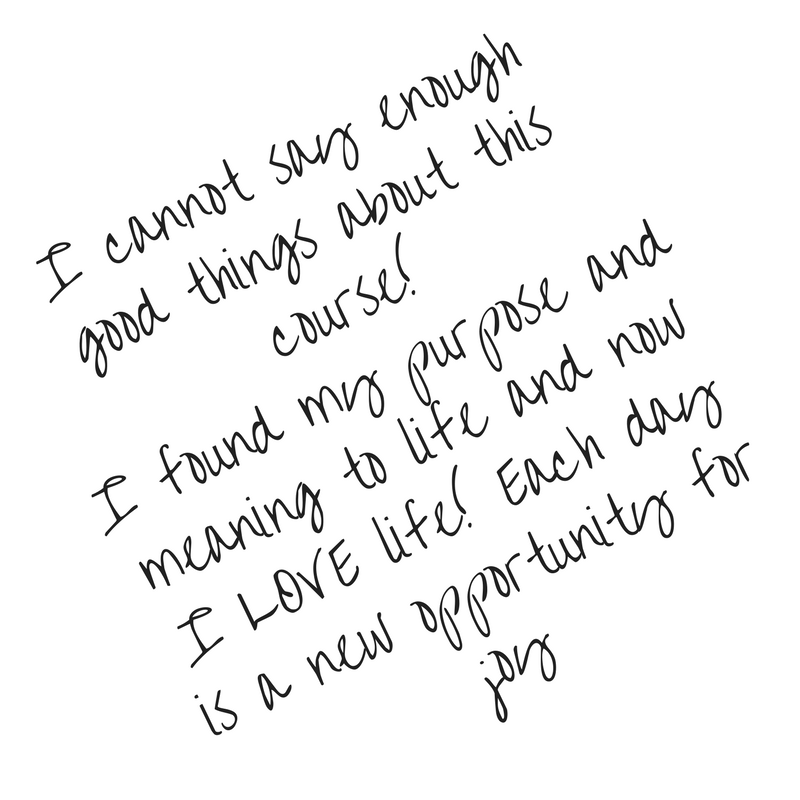 I cannot say enough
good things about this
course!
I found my purpose and
meaning to life and now
I LOVE life! Each day
is a new opportunity for
joy